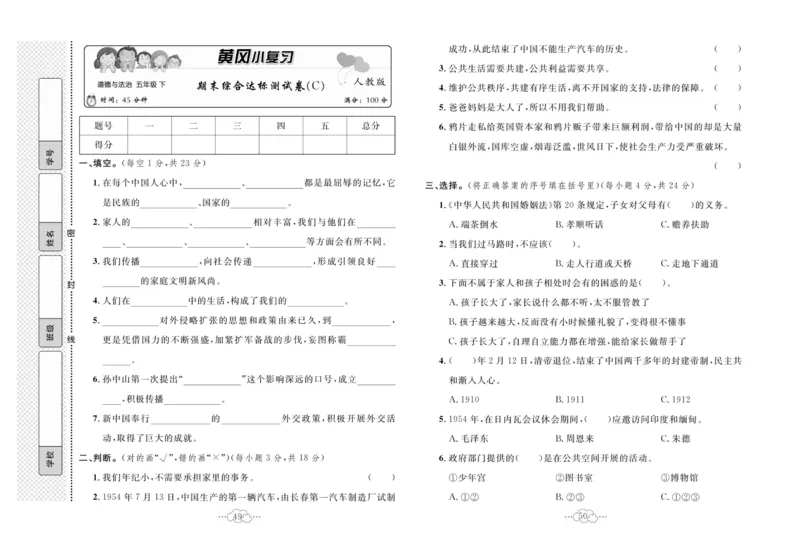 学号
姓名
班级
学校
密
封
线
黄冈小复习
道德与法治 五年级 下
期末综合达标测试卷(C)
人教版
时间：45 分钟
满分：100 分
题号 一 二 三 四 五 总分
得分
一、填空。(每空 1 分,共 23 分)
1. 在每个中国人心中,____________、____________都是最屈辱的记忆,它
是民族的____________、国家的____________。
2. 家人的____________、____________相对丰富,我们与他们在________
____、____________、____________、____________等方面会有所不同。
3. 我们传播____________,向社会传递____________,形成引领良好____
________的家庭文明新风尚。
4. 人们在____________中的生活,构成了我们的____________。
5. ____________对外侵略扩张的思想和政策由来已久,到____________,
更是凭借国力的不断强盛,加紧扩军备战的步伐,妄图称霸__________
______。
6. 孙中山第一次提出“____________”这个影响深远的口号,成立________
____,积极传播____________。
7. 新中国奉行____________的____________外交政策,积极开展外交活
动,取得了巨大的成就。
二、判断。(对的画“√”,错的画“×”)(每小题 3 分,共 18 分)
1. 我们年纪小,不需要承担家里的事务。 (    )
2. 1954 年 7 月 13 日,中国生产的第一辆汽车,由长春第一汽车制造厂试制
49
成功,从此结束了中国不能生产汽车的历史。 (    )
3. 公共生活需要共建,公共利益需要共享。 (    )
4. 维护公共秩序,共建有序生活,离不开国家的支持,法律的保障。 (    )
5. 爸爸妈妈是大人了,所以不用我们帮助。 (    )
6. 鸦片走私给英国资本家和鸦片贩子带来巨额利润,带给中国的却是大量
白银外流,国库空虚,烟毒泛滥,世风日下,使社会生产力受严重破坏。
(    )
三、选择。(将正确答案的序号填在括号里)(每小题 4 分,共 24 分)
1.《中华人民共和国婚姻法》第 20 条规定,子女对父母有(    )的义务。
A. 端茶倒水 B. 孝顺听话 C. 赡养扶助
2. 当我们过马路时,不应该(    )。
A. 直接穿过 B. 走人行道或天桥 C. 走地下通道
3. 下面不属于家人和孩子相处时会有的困惑的是(    )。
A. 孩子长大了,家长说什么都不听,太不服管教了
B. 孩子越来越大,反而没有小时候懂礼貌了,变得很不懂事
C. 孩子长大了,自理自立能力都在增强,能给家长做帮手了
4. (    )年 2 月 12 日,清帝退位,结束了中国两千多年的封建帝制,民主共
和渐入人心。
A. 1910 B. 1911 C. 1912
5. 1954 年,在日内瓦会议休会期间,(    )应邀访问印度和缅甸。
A. 毛泽东 B. 周恩来 C. 朱德
6. 政府部门提供的(    )是在公共空间开展的活动。
①少年宫 ②图书室 ③博物馆
A. ①② B. ②③ C. ①②③
50